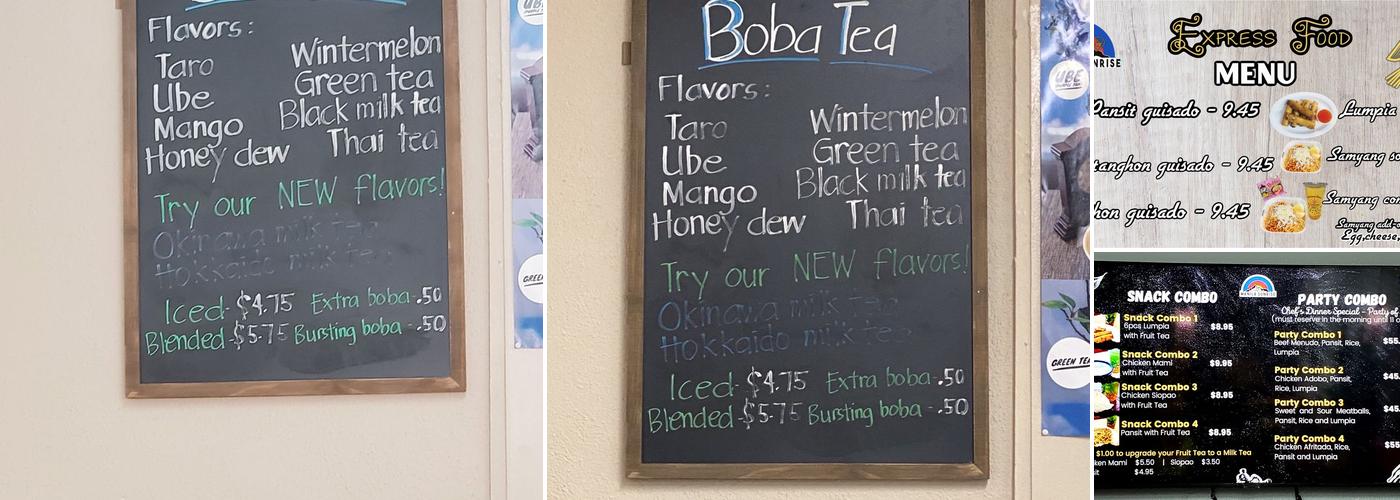 Flavors:
Taro Wintermelon
Ube Green tea
Mango Black milk tea
Honey dew Thai tea
Try our NEW flavors!
Okinawa milk tea
Hokkaido milk tea
Iced - $4.75 Extra boba - .50
Blended - $5.75 Bursting boba - .50
UBE
GREEN
Boba Tea
Flavors:
Taro Wintermelon
Ube Green tea
Mango Black milk tea
Honey dew Thai tea
Try our NEW flavors!
Okinawa milk tea
Hokkaido milk tea
Iced - $4.75 Extra boba - .50
Blended - $5.75 Bursting boba - .50
UBE
GREEN TEA
NRISE
Express Food
MENU
Pansit guisado - 9.45 Lumpia
tanghon guisado - 9.45 Samyang so
hon guisado - 9.45 Samyang com
Samyang add-o
Egg,cheese,
SNACK COMBO
Snack Combo 1
6pcs Lumpia $8.95
with Fruit Tea
Snack Combo 2
Chicken Mami $9.95
with Fruit Tea
Snack Combo 3
Chicken Siopao $8.95
with Fruit Tea
Snack Combo 4
Pansit with Fruit Tea $8.95
$1.00 to upgrade your Fruit Tea to a Milk Tea
ken Mami $5.50 | Siopao $3.50
sit $4.95
MANILA SUNRISE
PARTY COMBO
Chef's Dinner Special - Party of
(must reserve in the morning until 11
Party Combo 1
Beef Menudo, Pansit, Rice, $55.
Lumpia
Party Combo 2
Chicken Adobo, Pansit, $45.
Rice, Lumpia
Party Combo 3
Sweet and Sour Meatballs, $45.
Pansit, Rice and Lumpia
Party Combo 4
Chicken Afritada, Rice, $55
Pansit and Lumpia